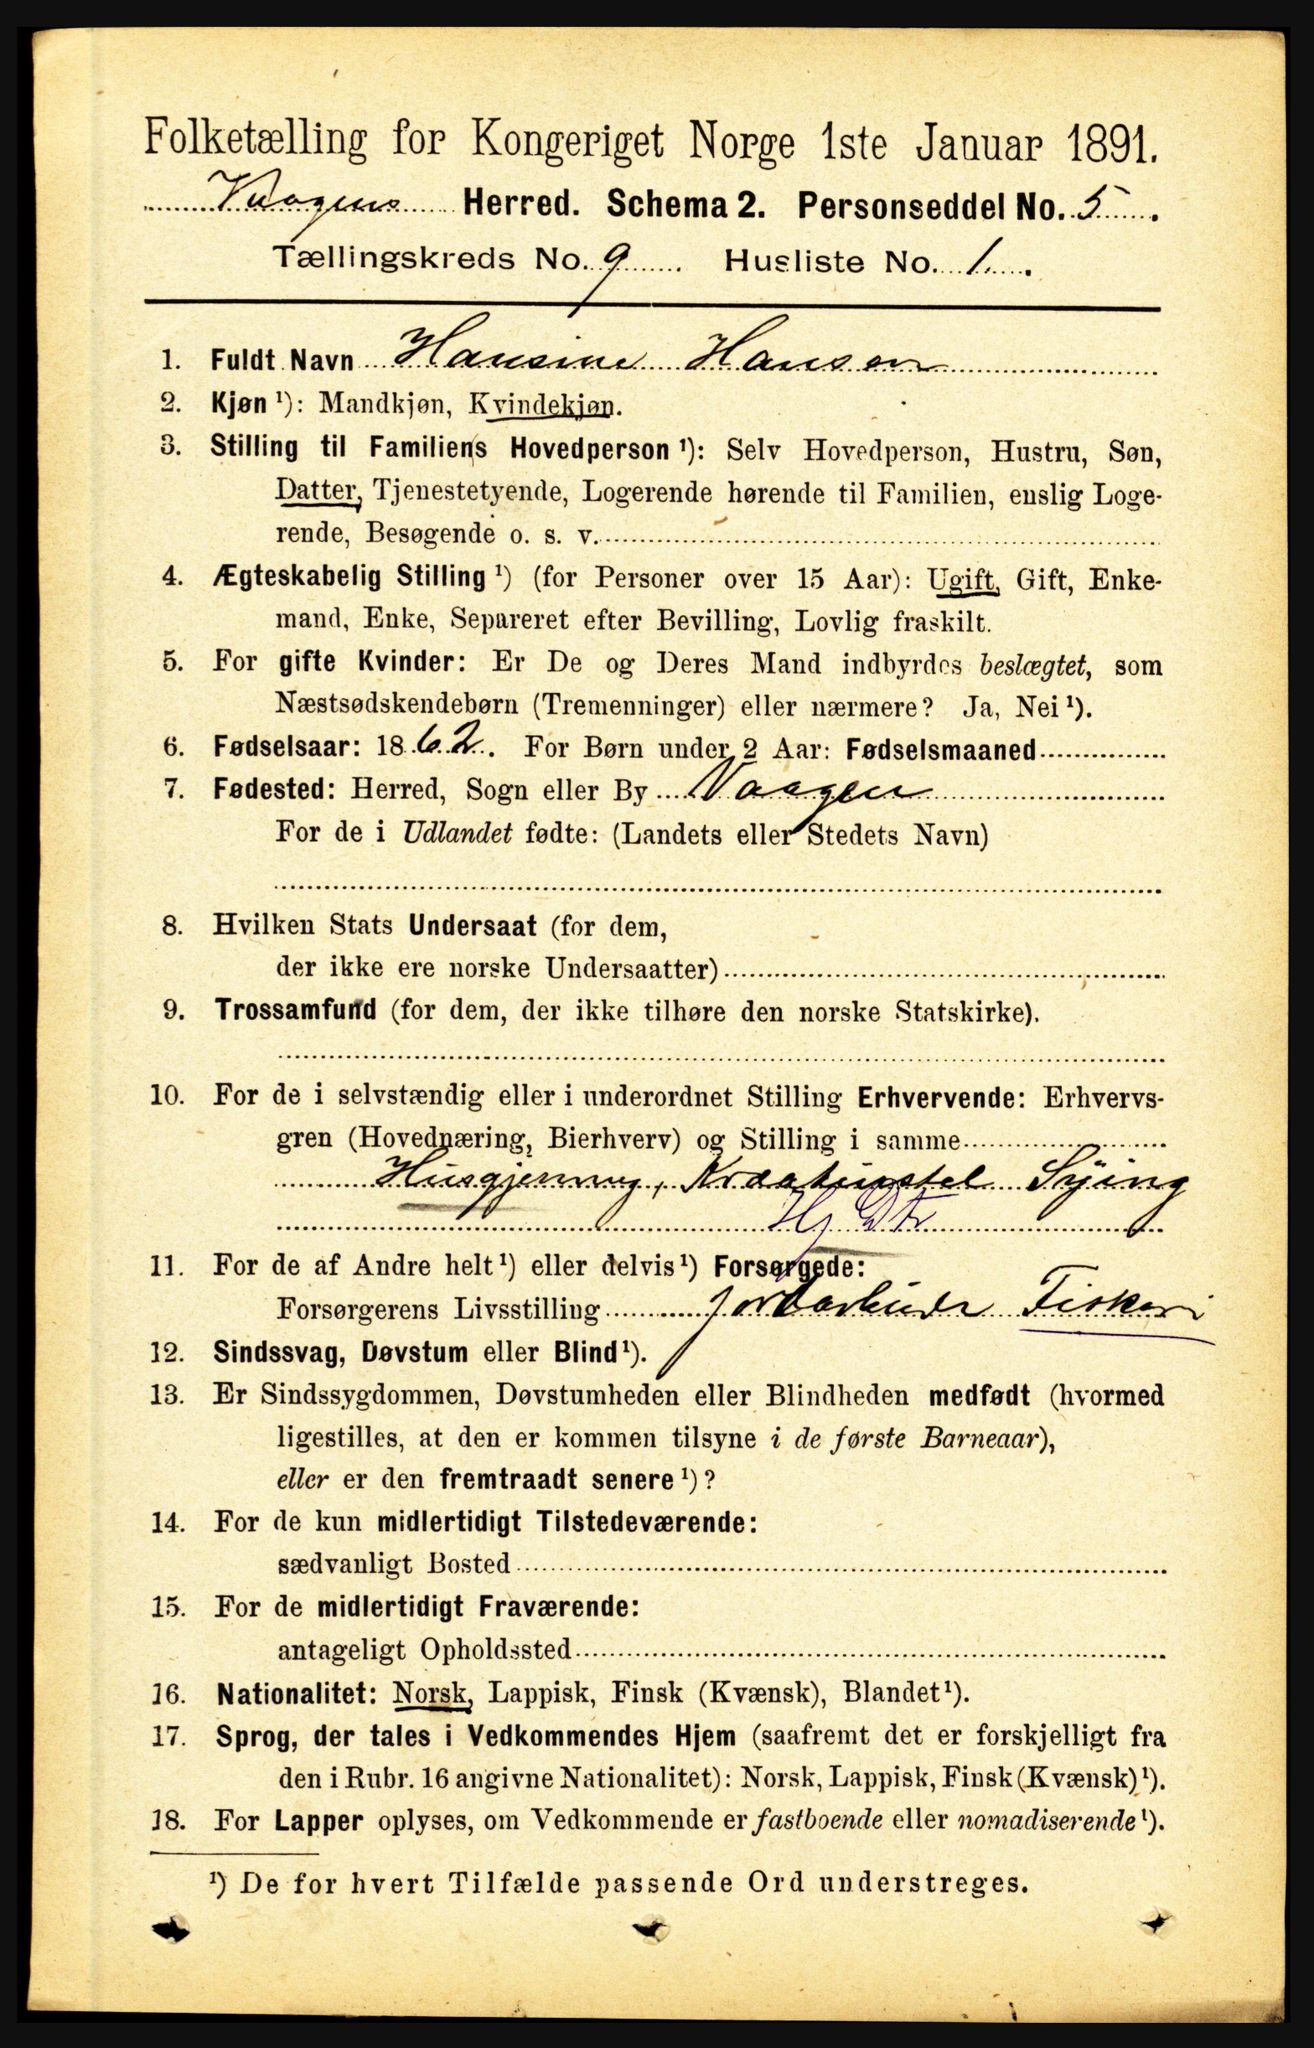 Folketælling for Kongeriget Norge 1ste Januar 1891.
Vaagens Herred. Schema 2. Personseddel No. 5.
Tællingskreds No. 9 Husliste No. 1.
1. Fuldt Navn Hansine Hansen
2. Kjøn ¹): Mandkjøn, Kvindekjøn.
3. Stilling til Familiens Hovedperson ¹): Selv Hovedperson, Hustru, Søn,
Datter, Tjenestetyende, Logerende hørende til Familien, enslig Loge-
rende, Besøgende o. s. v.
4. Ægteskabelig Stilling ¹) (for Personer over 15 Aar): Ugift, Gift, Enke-
mand, Enke, Separeret efter Bevilling, Lovlig fraskilt.
5. For gifte Kvinder: Er De og Deres Mand indbyrdes beslægtet, som
Næstsødskendebørn (Tremenninger) eller nærmere? Ja, Nei ¹).
6. Fødselsaar: 1862. For Børn under 2 Aar: Fødselsmaaned
7. Fødested: Herred, Sogn eller By Vaagen
For de i Udlandet fødte: (Landets eller Stedets Navn)
8. Hvilken Stats Undersaat (for dem,
der ikke ere norske Undersaatter)
9. Trossamfund (for dem, der ikke tilhøre den norske Statskirke).
10. For de i selvstændig eller i underordnet Stilling Erhvervende: Erhvervs-
gren (Hovednæring, Bierhverv) og Stilling i samme
Husgjerning, Kreaturstel Sÿing
Hj Dtr
11. For de af Andre helt ¹) eller delvis ¹) Forsørgede:
Forsørgerens Livsstilling Jordarbeide Fiskeri
12. Sindssvag, Døvstum eller Blind ¹).
13. Er Sindssygdommen, Døvstumheden eller Blindheden medfødt (hvormed
ligestilles, at den er kommen tilsyne i de første Barneaar),
eller er den fremtraadt senere ¹)?
14. For de kun midlertidigt Tilstedeværende:
sædvanligt Bosted
15. For de midlertidigt Fraværende:
antageligt Opholdssted
16. Nationalitet: Norsk, Lappisk, Finsk (Kvænsk), Blandet ¹).
17. Sprog, der tales i Vedkommendes Hjem (saafremt det er forskjelligt fra
den i Rubr. 16 angivne Nationalitet): Norsk, Lappisk, Finsk (Kvænsk) ¹).
18. For Lapper oplyses, om Vedkommende er fastboende eller nomadiserende ¹).
¹) De for hvert Tilfælde passende Ord understreges.